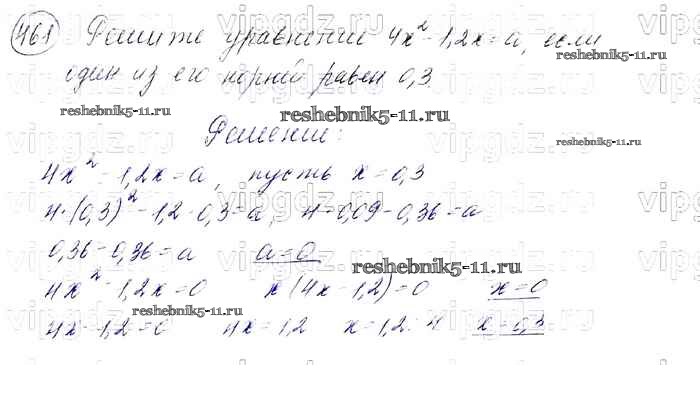 461 Решите уравнение 4x² - 1,2x = a, если
один из его корней равен 0,3.
reshebnik5-11.ru
reshebnik5-11.ru
Решение:
reshebnik5-11.ru
4x² - 1,2x = a, пусть x = 0,3
4·(0,3)² - 1,2·0,3 = a, 4·0,09 - 0,36 = a
0,36 - 0,36 = a a = 0
reshebnik5-11.ru
4x² - 1,2x = 0 x(4x - 1,2) = 0 x = 0
reshebnik5-11.ru
4x - 1,2 = 0 4x = 1,2 x = 1,2 : 4 x = 0,3